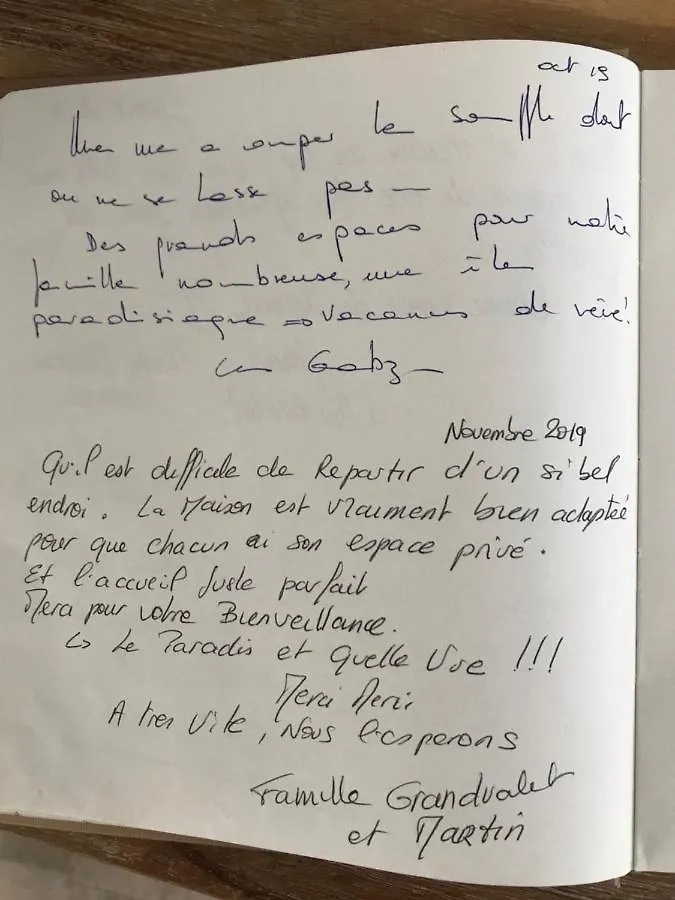 oct 19
Une vue a couper le souffle dont
on ne se lasse pas —
Des grands espaces pour notre
famille nombreuse, une île
paradisiaque => vacances de rêve!
Novembre 2019
Qu'il est difficile de Repartir d'un si bel
endroi. La Maison est vraument bien adaptée
pour que chacun ai son espace privé.
Et l'accueil Juste parfait
Merci pour votre Bienveillance.
↳ Le Paradis et Quelle Vue !!!
Merci Merci
A tres Vite, Nous l'esperons
Famille Grandvalet
et Martin